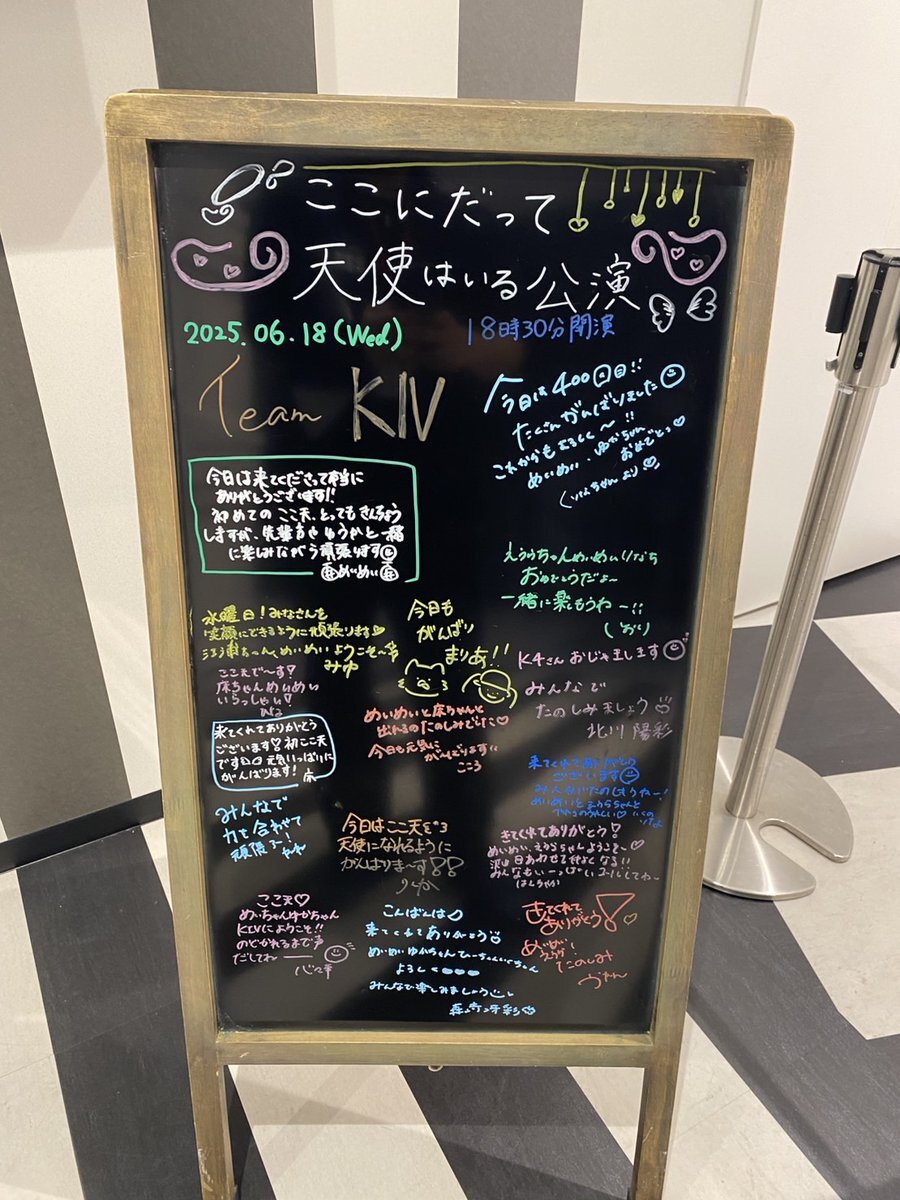 ここにだって
天使はいる公演
2025.06.18(Wed)
18時30分開演
Team KIV
今日は400回目!!
たくさんがんばりました
これからもよろしく〜!!
めいめい、ゆかちゃん
おめでとっ♡
今日は来てくださって本当に
ありがとうございます!!
初めてのここ天、とってもきんちょう
しますが、先輩方やゆうかと一緒
に楽しみながら頑張ります
めいめい
おめでとうだよー
一緒に楽しもうねー!!
(しおり)
水曜日!みなさんを
笑顔にできるように頑張ります
ちゃん、めいめい ようこそ〜
みゆ
今日も
がんばり
まりあ!!
K4さん おじゃまします
みんなで
たのしみましょう
北川 陽彩
ここえで〜す!
床ちゃんめいめい
いらっしゃい!
めいめいと床ちゃんと
出れるのたのしみでした♡
今日も元気に
がんばります!!
こころ
来てくれてありがとう
ございます♡初ここ天
です 元気いっぱいに
がんばります! 床
来てくれてありがとう
ございます
みんなでたのしもうねー!
みんなで
力を合わせて
頑張るー!
今日はここ天を
天使になれるように
がんばりま〜す
りんか
きてくれてありがとう!
めいめい、えうらちゃんようこそ〜♡
ここ天♡
めいちゃんゆかちゃん
KIVにようこそ!!
のどかれるまで声
だしてねー
こんばんは
来てくれてありがとう
めいめい ゆかちゃん
よろしく
みんなで楽しみましょう
きてくれて
ありがとう!
めいめい
たのしみ